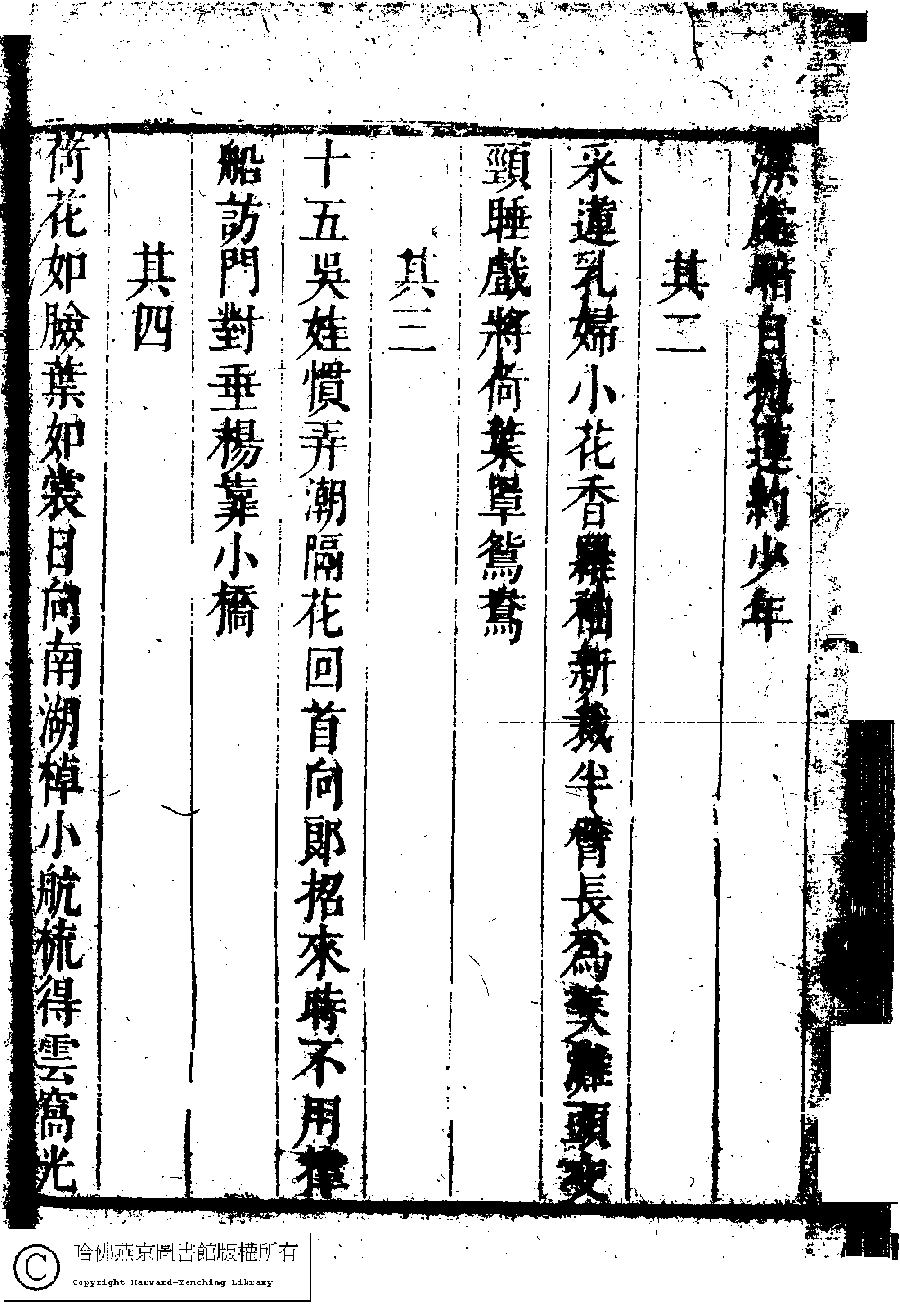 深處暗自拋蓮約少年
其二
采蓮乳婦小花香羅袖新裁半臂長爲笑灘頭交
頸睡戲將荷葉罩鴛鴦
其三
十五吳娃慣弄潮隔花回首向郎招來時不用撑
船訪門對垂楊靠小橋
其四
荷花如臉葉如裳日向南湖棹小航梳得雲窩光
哈佛燕京圖書館版權所有
Copyright Harvard-Yenching Library